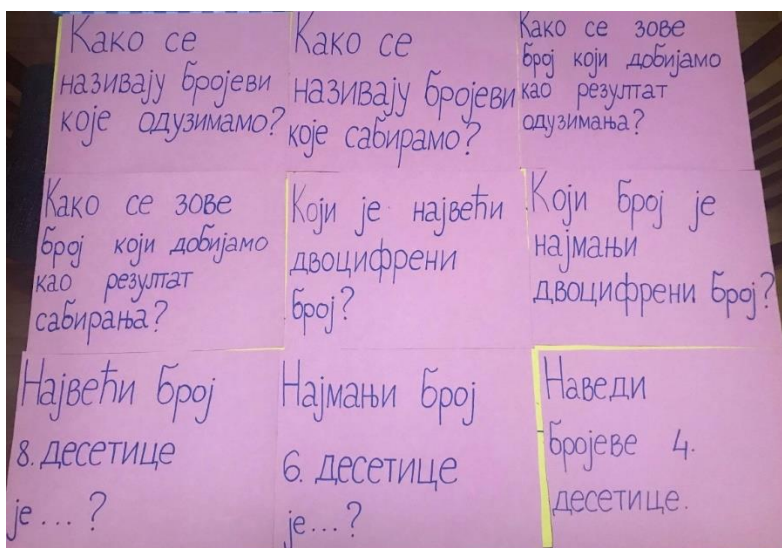 Како се
називају бројеви
које одузимамо?
Како се
називају бројеви
које сабирамо?
Како се зове
број који добијамо
као резултат
одузимања?
Како се зове
број који добијамо
као резултат
сабирања?
Који је највећи
двоцифрени
број?
Који број је
најмањи
двоцифрени број?
Највећи број
8. десетице
је... ?
Најмањи број
6. десетице
је...?
Наведи
бројеве 4.
десетице.